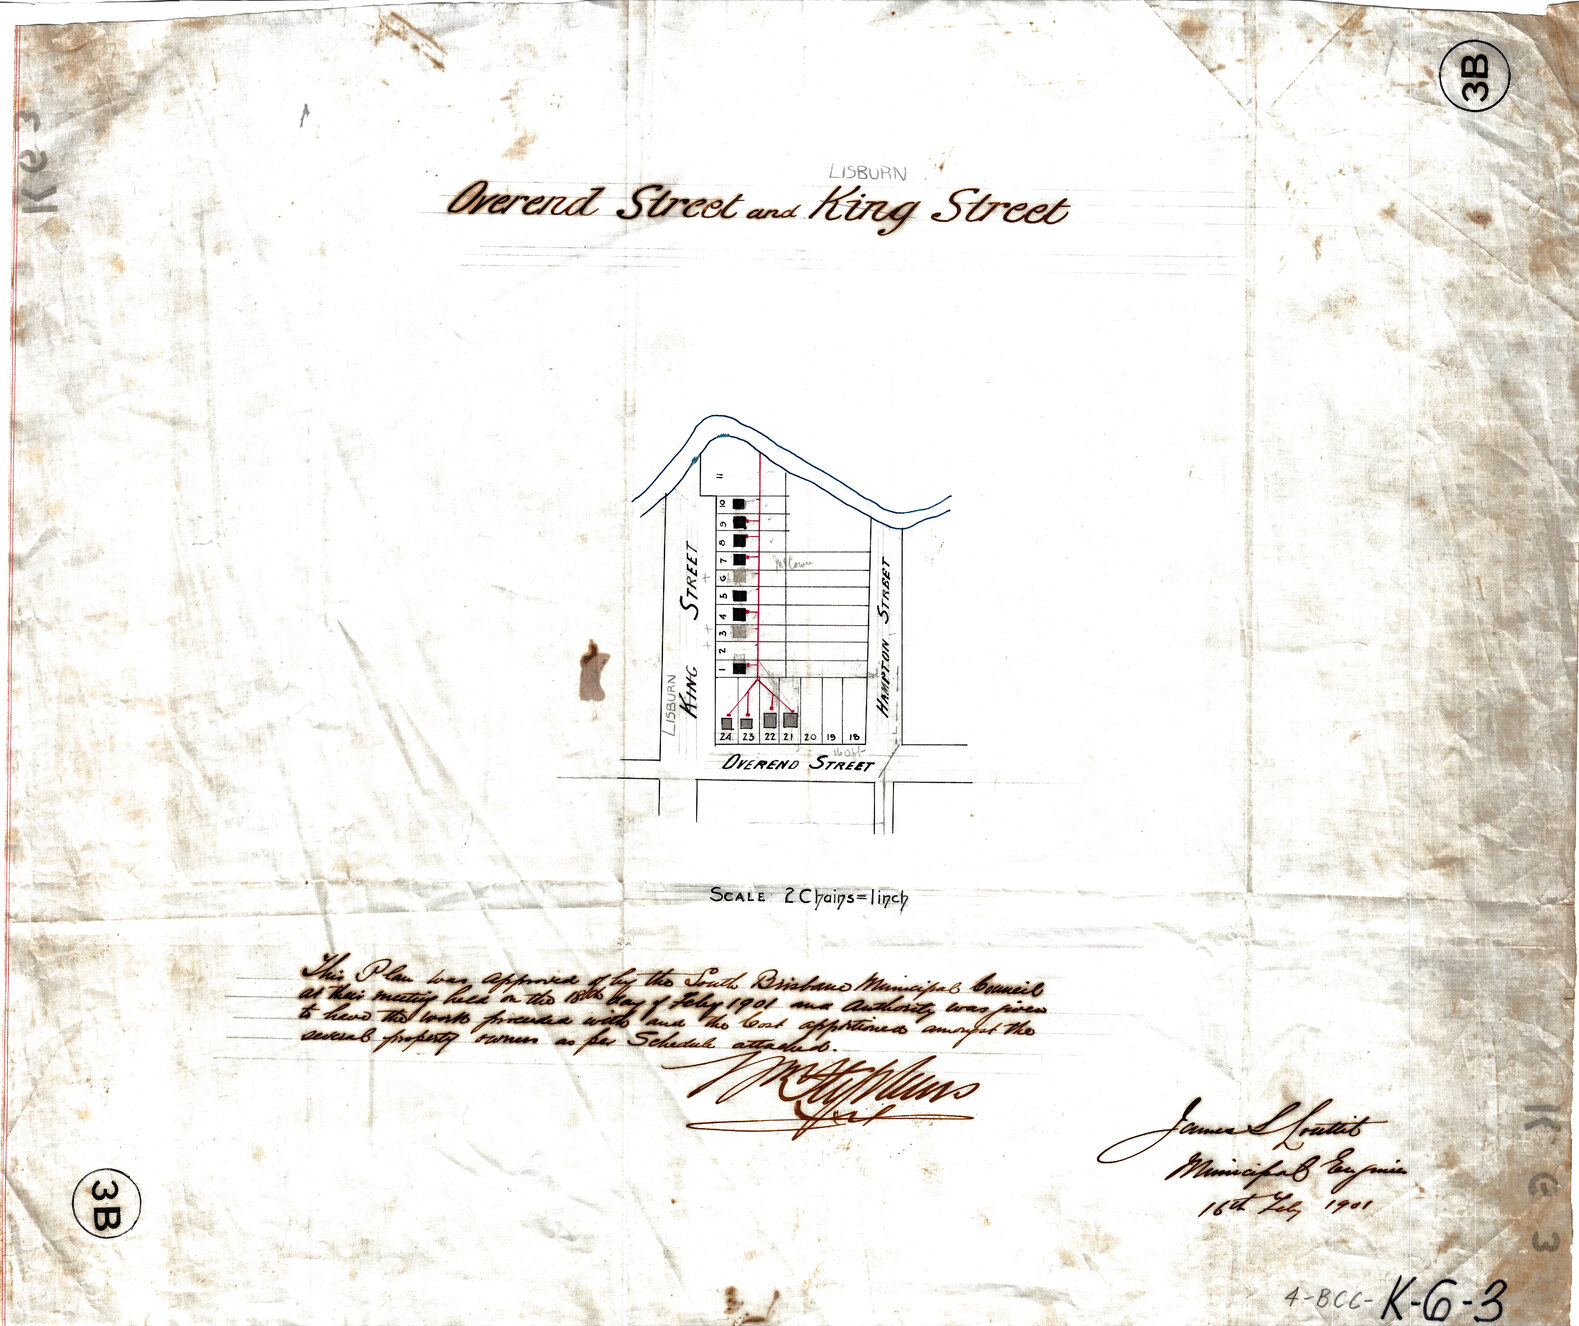 3B
K 6 3
LISBURN
Overend Street and King Street
11
10
9
8
7
6
5
4
3
2
1
McCown
KING STREET
LISBURN
HAMPTON STREET
24 23 22 21 20 19 18
OVEREND STREET
SCALE 2 Chains = 1 inch
This Plan was approved of by the South Brisbane Municipal Council
at their meeting held on the 18th day of Feby 1901 and Authority was given
to have the work proceeded with and the Cost apportioned amongst the
several property owners as per Schedule attached.
Wm Stephens
James S Louttit
Municipal Engineer
16th Feby 1901
3B
K 6 3
4-BCC- K-6-3